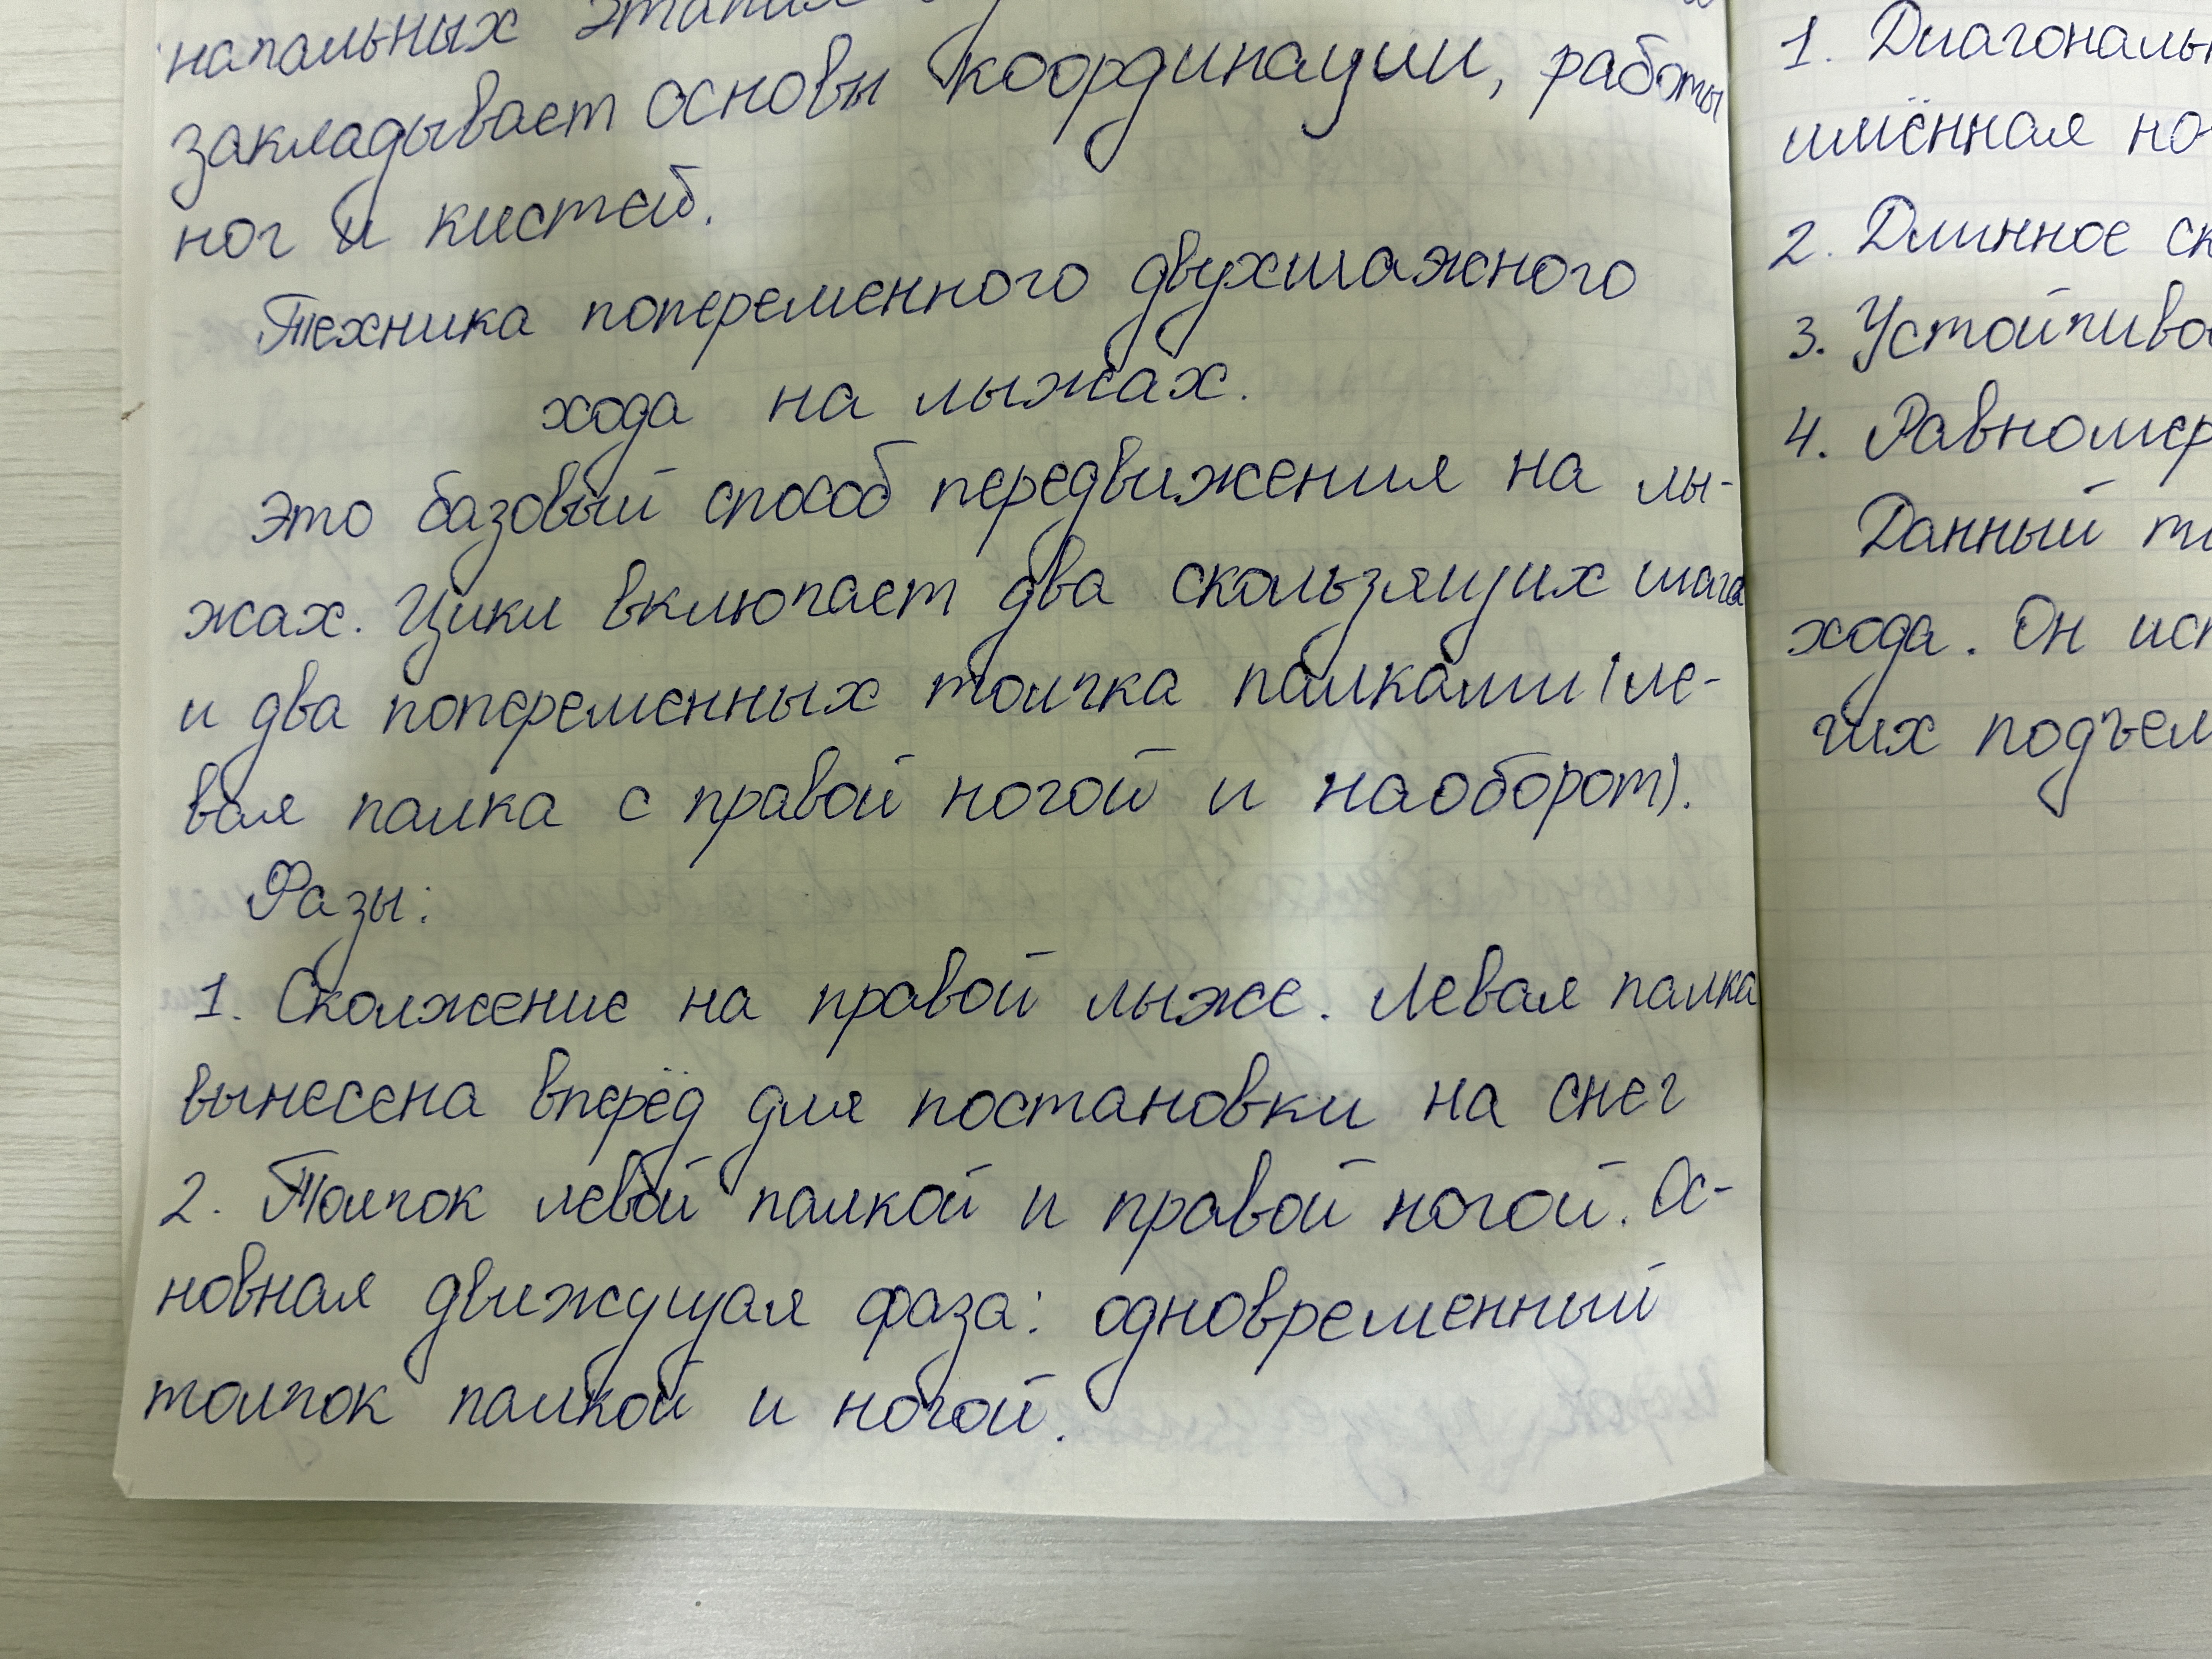 начальных этапах
закладывает основы координации, работы
ног и кистей.
Техника попеременного двухшажного
хода на лыжах.
Это базовый способ передвижения на лы-
жах. Цикл включает два скользящих шага
и два попеременных толчка палками (ле-
вая палка с правой ногой и наоборот).
Фазы:
1. Сколжение на правой лыже. Левая палка
вынесена вперёд для постановки на снег
2. Толчок левой палкой и правой ногой. Ос-
новная движущая фаза: одновременный
толчок палкой и ногой.
1. Диагональн
имённая но
2. Длинное ск
3. Устойчиво
4. Равномер
Данный т
хода. Он исп
гих подъем